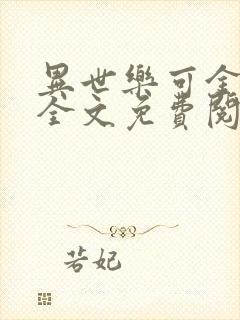 異世樂可全
全文免費閱
若妃